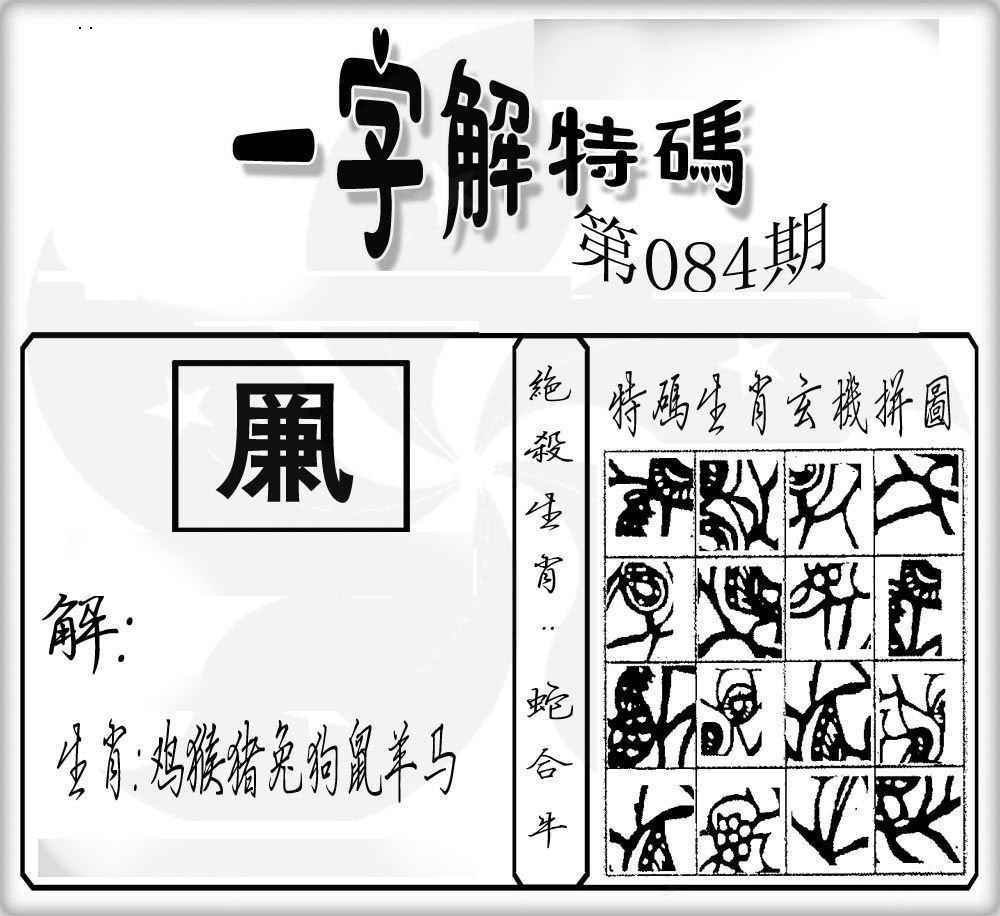 一字解特碼
第084期
解:
生肖:鸡猴猪兔狗鼠羊马
絶殺生肖:蛇合牛
特碼生肖玄機拼圖